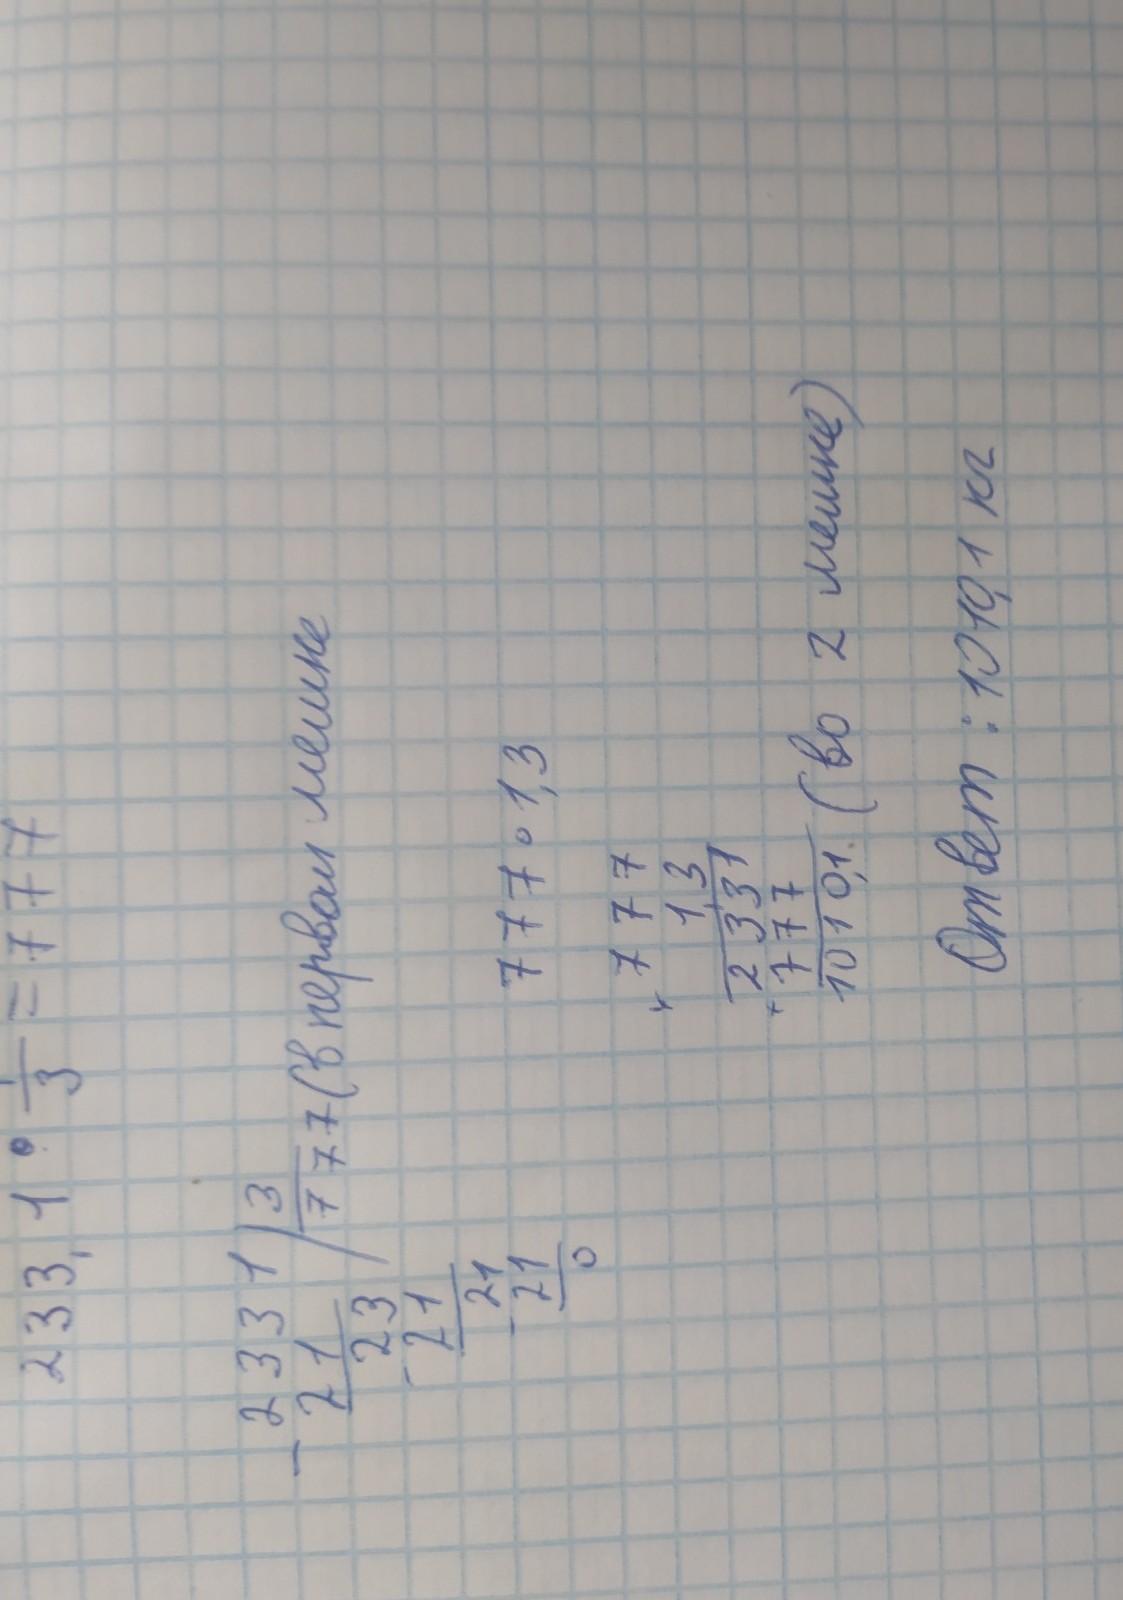 233,1 · 1/3 = 777
- 2331 | 3
21 777 (в первом мешке
23
- 21
21
- 21
0
777 · 1,3
× 777
1,3
2331
+ 777
1010,1 (во 2 мешке)
Ответ : 1010,1 кг